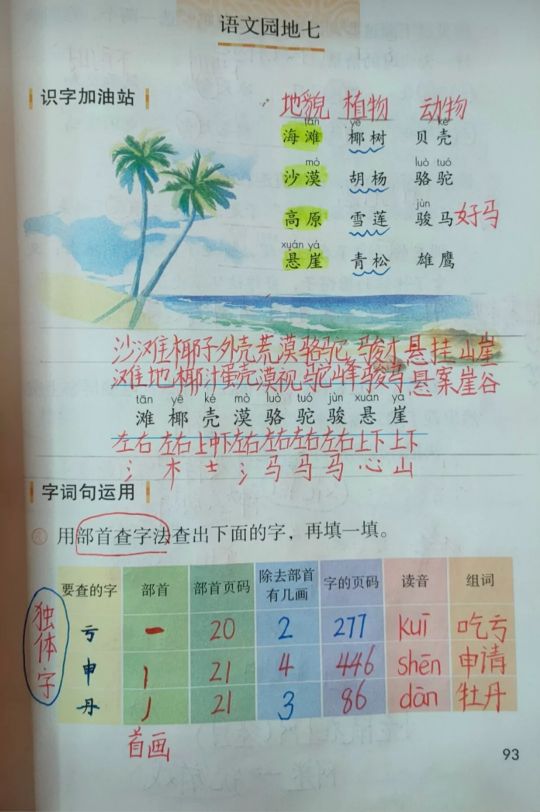 语文园地七
识字加油站
地貌 植物 动物
tān yē ké
海滩 椰树 贝壳
mò luò tuó
沙漠 胡杨 骆驼
jùn
高原 雪莲 骏马 好马
xuán yá
悬崖 青松 雄鹰
沙滩 椰子 外壳 荒漠 骆驼 悬挂 山崖
滩地 椰汁 蛋壳 漠视 驼峰 骏马 悬案 崖谷
tān yē ké mò luò tuó jùn xuán yá
滩 椰 壳 漠 骆 驼 骏 悬 崖
左右 左右 上中下 左右 左右 左右 左右 上下 上下
氵 木 士 氵 马 马 马 心 山
字词句运用
用部首查字法查出下面的字，再填一填。
要查的字 部首 部首页码 除去部首有几画 字的页码 读音 组词
独体字
亏 一 20 2 277 kuī 吃亏
申 丨 21 4 446 shēn 申请
丹 丿 21 3 86 dān 牡丹
首画
93